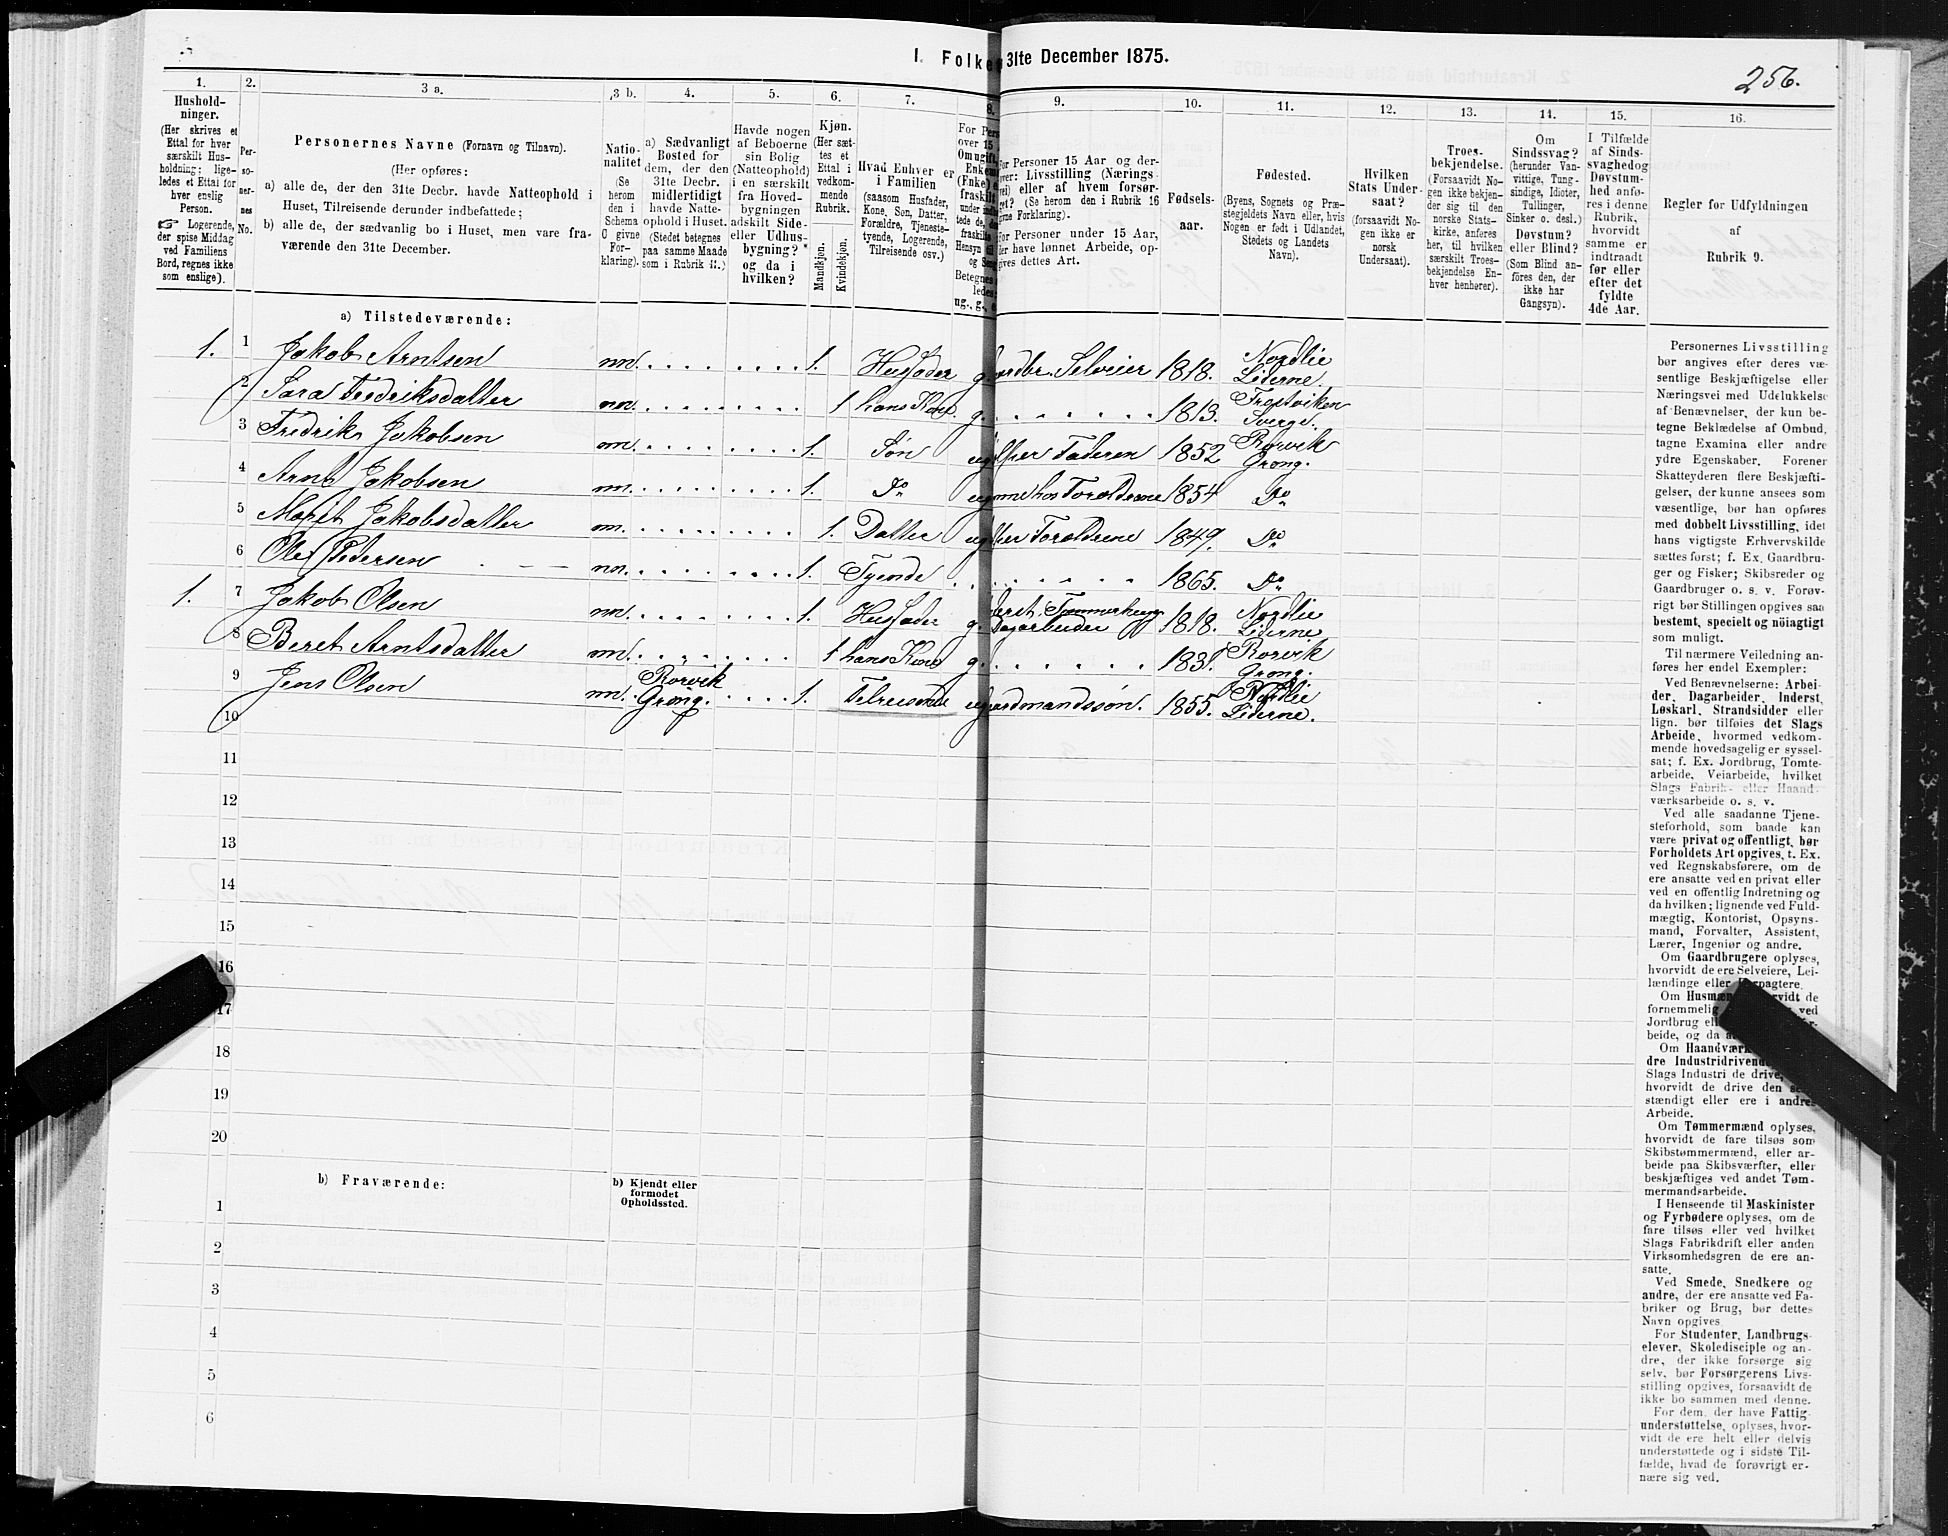 I. Folke 31te December 1875.
256.
1. 2. 3 a. 3 b. 4. 5. 6. 7. 8. 9. 10. 11. 12. 13. 14. 15. 16.
Hushold-
ninger.
(Her skrives et
Ettal for hver
særskilt Hus-
holdning; lige-
ledes et Ettal for
hver enslig
Person.
☞ Logerende,
der spise Middag
ved Familiens
Bord, regnes ikke
som enslige).
Per-
so-
ner-
nes
No.
Personernes Navne (Fornavn og Tilnavn).
(Her opføres:
a) alle de, der den 31te Decbr. havde Natteophold i
Huset, Tilreisende derunder indbefattede;
b) alle de, der sædvanlig bo i Huset, men vare fra-
værende den 31te December.
Natio-
nalitet
(Se
herom
den i
Schema
O givne
For-
klaring).
a) Sædvanligt
Bosted for
dem, der den
31te Decbr.
midlertidigt
havde Natte-
ophold i Huset.
(Stedet betegnes
paa samme Maade
som i Rubrik 11.)
Havde nogen
af Beboerne
sin Bolig
(Natteophold)
i en særskilt
fra Hoved-
bygningen
adskilt Side-
eller Udhus-
bygning?
og da i
hvilken?
Kjøn.
(Her sæt-
tes et
Ettal i
vedkom-
mende
Rubrik.
Mandkjøn.
Kvindekjøn.
Hvad Enhver er
i Familien
(saasom Husfader,
Kone, Søn, Datter,
Forældre, Tjeneste-
tyende, Logerende,
Tilreisende osv.)
For Pers
over 15
Om ugift,
Enkem
(Enke) e
fraskilt
og Seng
Betegnes
ledes:
ug., g., e
For Personer 15 Aar og der-
over: Livsstilling (Nærings-
vei) eller af hvem forsør-
get? (Se herom den i Rubrik 16
givne Forklaring).
For Personer under 15 Aar,
der have lønnet Arbeide, op-
gives dettes Art.
Fødsels-
aar.
Fødested.
(Byens, Sognets og Præ-
stegjeldets Navn eller, hvis
Nogen er født i Udlandet,
Stedets og Landets
Navn).
Hvilken
Stats Under-
saat?
(forsaavidt No-
gen ikke er
norsk
Undersaat).
Troes-
bekjendelse.
(Forsaavidt No-
gen ikke bekjen-
der sig til den
norske Stats-
kirke, anføres
her, til hvilken
særskilt Troes-
bekjendelse En-
hver henhører).
Om
Sindssvag?
(herunder Van-
vittige, Tung-
sindige, Idioter,
Tullinger,
Sinker o. desl.)
Døvstum?
eller Blind?
(Som Blind an-
føres den, der
ikke har
Gangsyn).
I Tilfælde
af Sinds-
svaghed og
Døvstum-
hed anfø-
res i denne
Rubrik,
hvorvidt
samme er
indtraadt
før eller
efter det
fyldte
4de Aar.
Regler for Udfyldningen
af
Rubrik 9.
a) Tilstedeværende:
1. 1 Jakob Arntsen nn. 1. Husfader g. Gaardbr. Selveier 1818. Nordlie Lierne.
2 Sara Fredriksdatter nn. 1 hans Kone g. 1813. Frostviken Sverge.
3 Fredrik Jakobsen nn. 1. Søn Faderen 1852 Rørvik Grong.
4 Arnt Jakobsen nn. 1. Do hos Forældrene 1854 Do
5 Maret Jakobsdatter nn. 1. Datter Forældrene 1849. Do
6 Ole Pedersen nn. 1. Tyende 1865. Do
1. 7 Jakob Olsen nn. 1. Husfader g. Dagarbeider 1818. Nordlie Lierne
8 Beret Arntsdatter nn. 1 hans Kone g. 1831. Rørvik Grong.
9 Jens Olsen nn. Rørvik Grong. 1. Tilreisende Gaardmandssøn. 1855. Nordlie Lierne.
10
11
12
13
14
15
16
17
18
19
20
b) Fraværende:
b) Kjendt eller
formodet
Opholdssted.
1
2
3
4
5
6
Personernes Livsstilling
bør angives efter deres væ-
sentlige Beskjæftigelse eller
Næringsvei med Udelukkelse
af Benævnelser, der kun be-
tegne Beklædelse af Ombud,
tagne Examina eller andre
ydre Egenskaber. Forener
Skatteyderen flere Beskjæfti-
gelser, der kunne ansees som
væsentlige, bør han opføres
med dobbelt Livsstilling, idet
hans vigtigste Erhvervskilde
sættes først; f. Ex. Gaardbru-
ger og Fisker; Skibsreder og
Gaardbruger o. s. v. Forøv-
rigt bør Stillingen opgives saa
bestemt, specielt og nöiagtigt
som muligt.
Til nærmere Veiledning an-
føres her endel Exempler:
Ved Benævnelserne: Arbei-
der, Dagarbeider, Inderst,
Løskarl, Strandsidder eller
lign. bør tilføies det Slags
Arbeide, hvormed vedkom-
mende hovedsagelig er syssel-
sat; f. Ex. Jordbrug, Tomte-
arbeide, Veiarbeide, hvilket
Slags Fabrik- eller Haand-
værksarbeide o. s. v.
Ved alle saadanne Tjene-
steforhold, som baade kan
være privat og offentligt, bør
Forholdets Art opgives, t. Ex.
ved Regnskabsførere, om de
ere ansatte ved en privat eller
ved en offentlig Indretning og
da hvilken; lignende ved Fuld-
mægtig, Kontorist, Opsyns-
mand, Forvalter, Assistent,
Lærer, Ingeniør og andre.
Om Gaardbrugere oplyses,
hvorvidt de ere Selveiere, Lei-
lændinge eller Forpagtere.
Om Husmænd hvorvidt de
fornemmelig ved
Jordbrug
beide, og da
Om Haandværk
dre Industridrivende
Slags Industri de drive,
hvorvidt de drive den
stændigt eller ere i andres
Arbeide.
Om Tømmermænd oplyses,
hvorvidt de fare tilsøs som
Skibstømmermænd, eller ar-
beide paa Skibsværfter, eller
beskjæftiges ved andet Tøm-
mermandsarbeide.
I Henseende til Maskinister
og Fyrbødere oplyses, om de
fare tilsøs eller ved hvilket
Slags Fabrikdrift eller anden
Virksomhedsgren de ere an-
satte.
Ved Smede, Snedkere og
andre, der ere ansatte ved Fa-
briker og Brug, bør dettes
Navn opgives.
For Studenter, Landbrugs-
elever, Skoledisciple og an-
dre, der ikke forsørge sig
selv, bør Forsørgerens Livs-
stilling opgives, forsaavidt de
ikke bo sammen med denne.
For dem, der have Fattig-
understøttelse, oplyses, hvor-
vidt de ere helt eller delvis
understøttede og i sidste Til-
fælde, hvad de forøvrigt er-
nære sig ved.